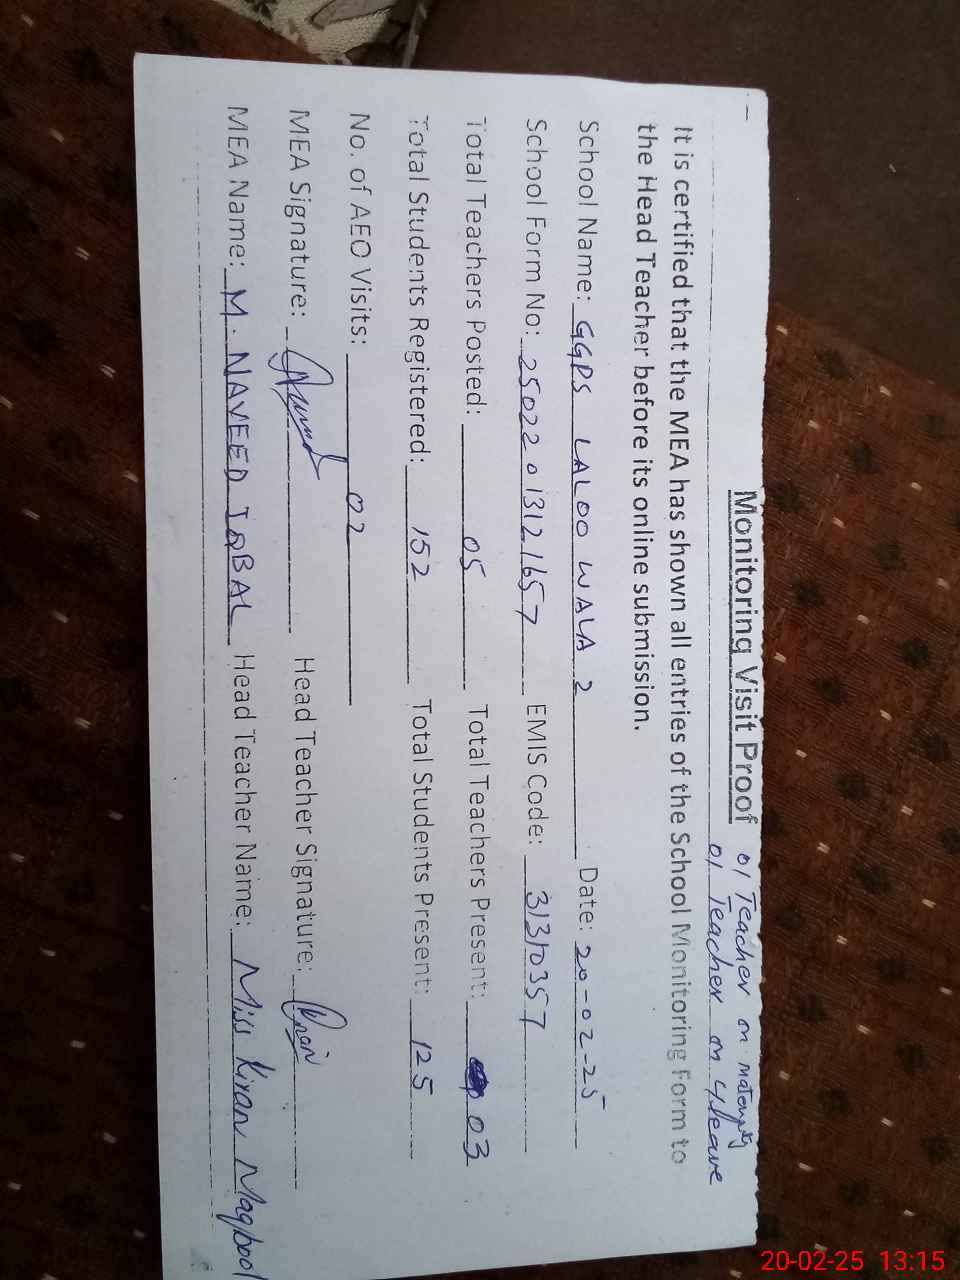 Monitoring Visit Proof
01 Teacher on maternity
01 Teacher on leave
It is certified that the MEA has shown all entries of the School Monitoring Form to
the Head Teacher before its online submission.
School Name: GGPS LALOO WALA 2 Date: 20-02-25
School Form No: 25022013121657 EMIS Code: 31310357
Total Teachers Posted: 05 Total Teachers Present: 03
Total Students Registered: 152 Total Students Present: 125
No. of AEO Visits: 02
MEA Signature: Head Teacher Signature: Kiran
MEA Name: M. NAVEED IQBAL Head Teacher Name: Miss Kiran Maqbool
20-02-25 13:15